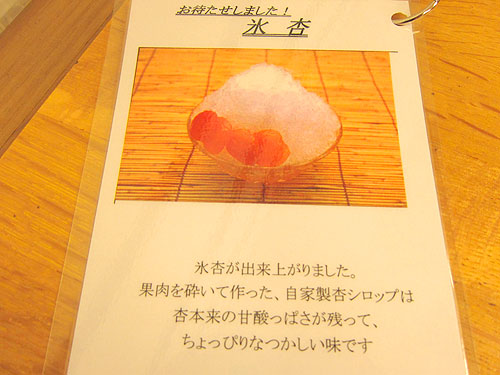 お待たせしました！
氷　杏
氷杏が出来上がりました。
果肉を砕いて作った、自家製杏シロップは
杏本来の甘酸っぱさが残って、
ちょっぴりなつかしい味です